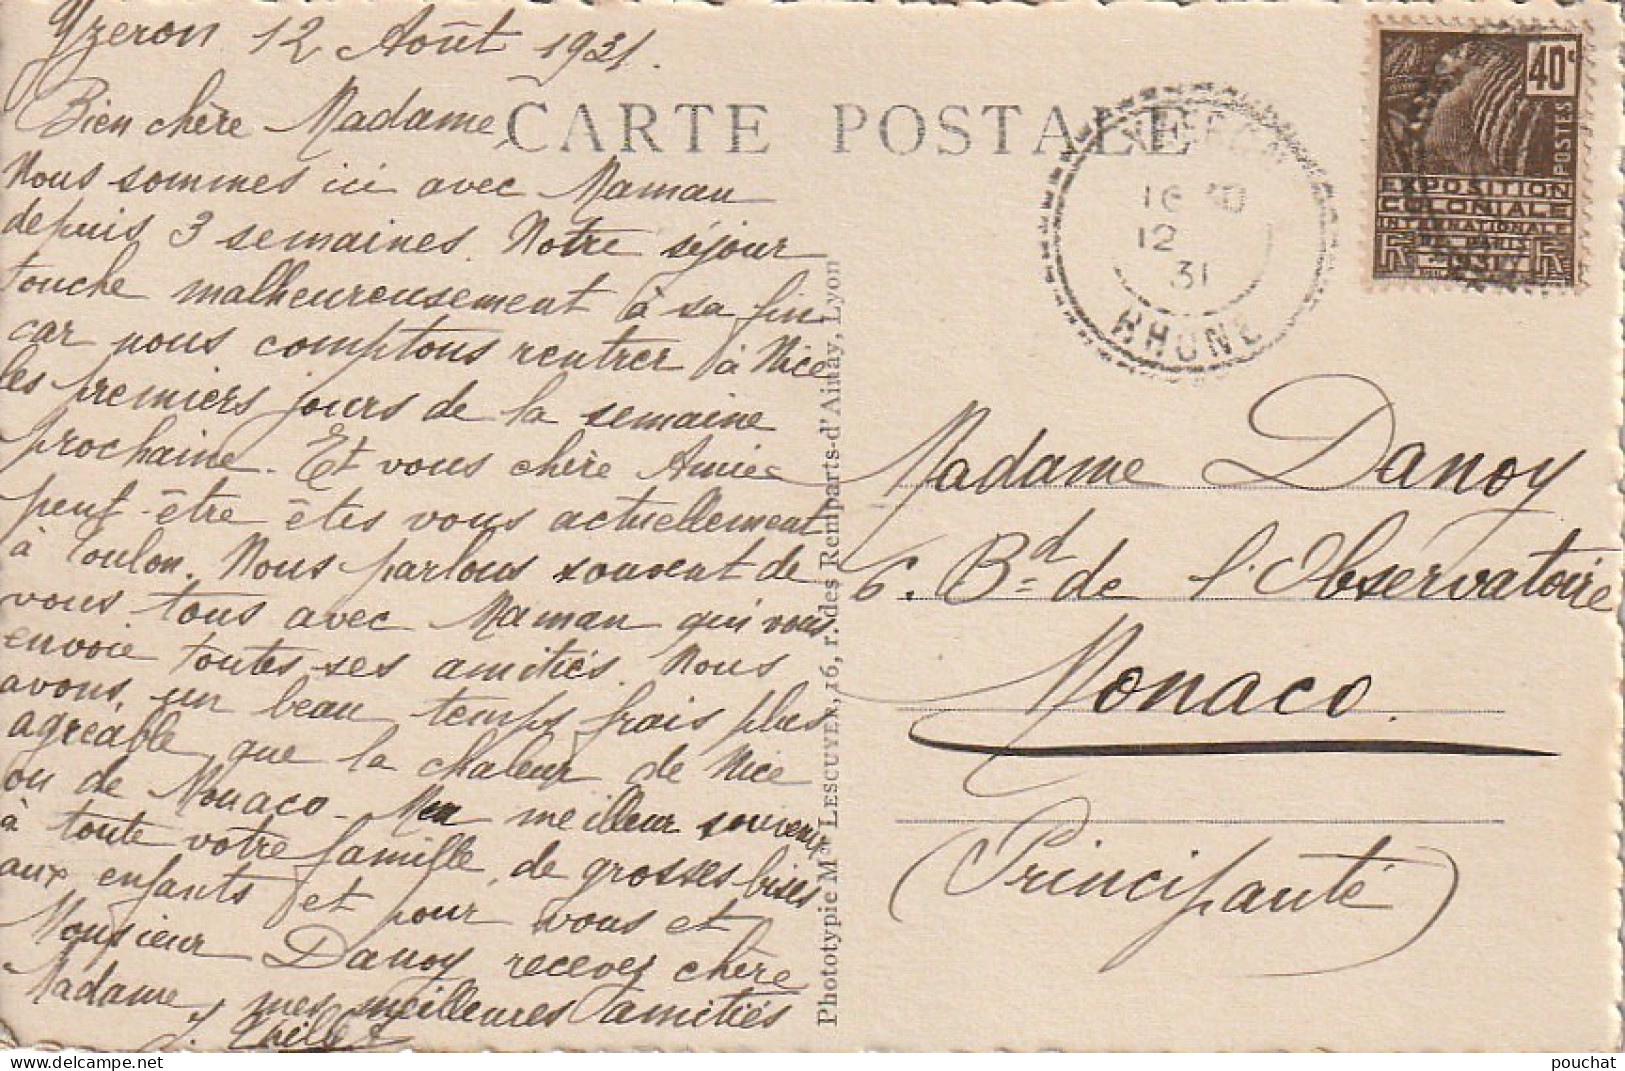 Yzeron 12 Août 1931.
Bien chère Madame,
Nous sommes ici avec Maman
depuis 3 semaines. Notre séjour
touche malheureusement à sa fin
car nous comptons rentrer à Nice
les premiers jours de la semaine
prochaine. Et vous chère Amie
peut-être êtes vous actuellement
à Toulon. Nous parlons souvent de
vous tous avec Maman qui vous
envoie toutes ses amitiés. Nous
avons un beau temps frais plus
agréable que la chaleur de Nice
ou de Monaco - meilleur souvenir
à toute votre famille, de grosses bises
aux enfants et pour vous et
Monsieur Danoy recevez chère
Madame, mes meilleures amitiés
CARTE POSTALE
Phototypie Mme LESCUYER, 16, r. des Remparts-d'Ainay, Lyon
YZERON
12
31
RHONE
40c
POSTES
EXPOSITION
COLONIALE
INTERNATIONALE
DE PARIS
1931
RF
Madame Danoy
6. Bd de l'Observatoire
Monaco.
(Principauté)
pouchat